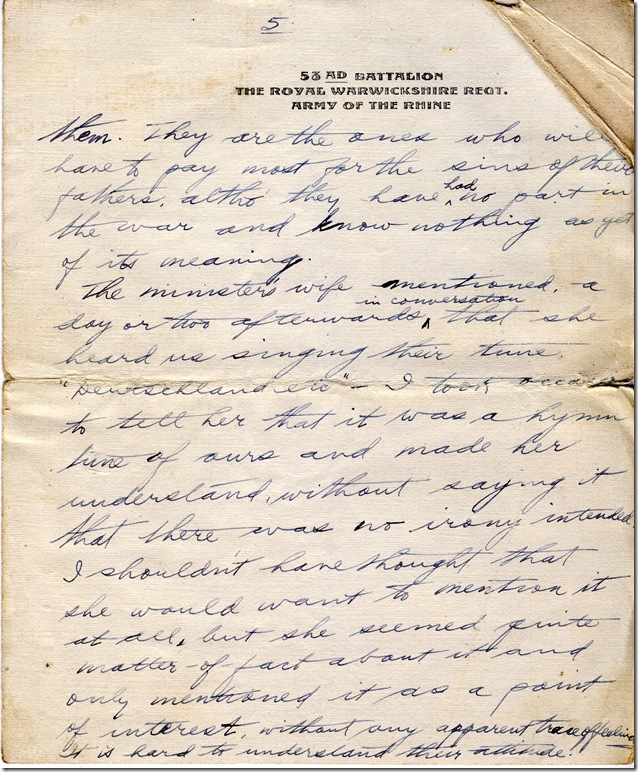 5
53RD BATTALION
THE ROYAL WARWICKSHIRE REGT.
ARMY OF THE RHINE
them. They are the ones who will
have to pay most for the sins of their
fathers, altho' they have had no part in
the war and know nothing as yet
of its meaning.
The minister's wife mentioned, a
day or two afterwards, in conversation that she
heard us singing their tune
"Deutschland etc" – I took
to tell her that it was a hymn
tune of ours and made her
understand, without saying it
that there was no irony intended
I shouldn't have thought that
she would want to mention it
at all, but she seemed quite
matter-of-fact about it and
only mentioned it as a point
of interest, without any apparent trace of feeling
It is hard to understand their attitude.